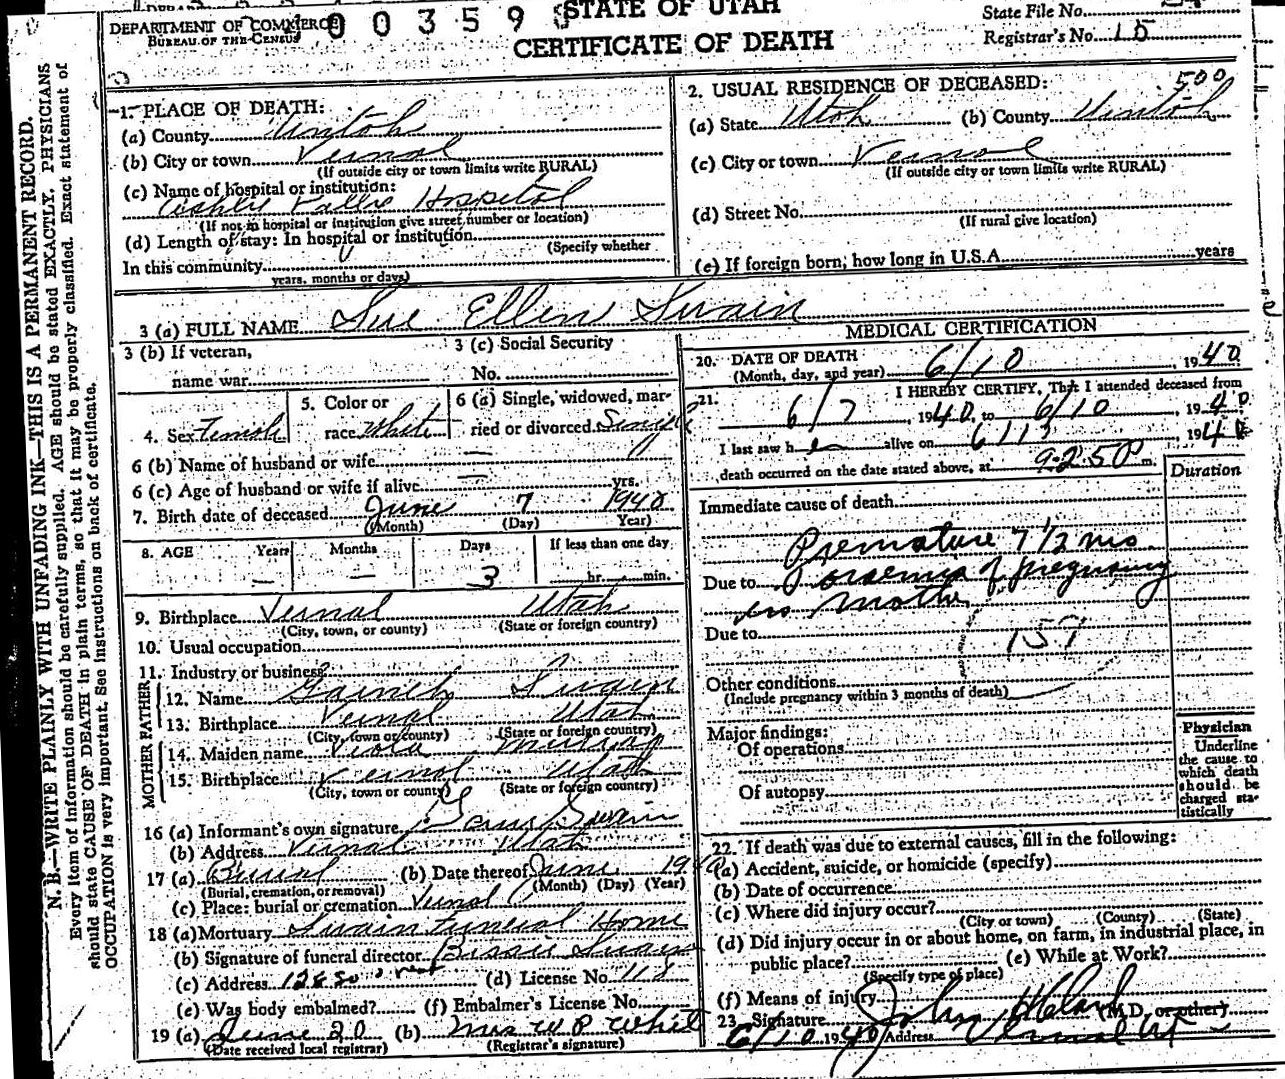 DEPARTMENT OF COMMERCE
BUREAU OF THE CENSUS
0 0 3 5 9
STATE OF UTAH
CERTIFICATE OF DEATH
State File No.
Registrar's No. 15
N. B.—WRITE PLAINLY WITH UNFADING INK—THIS IS A PERMANENT RECORD.
Every item of information should be carefully supplied. AGE should be stated EXACTLY. PHYSICIANS
should state CAUSE OF DEATH in plain terms, so that it may be properly classified. Exact statement of
OCCUPATION is very important. See instructions on back of certificate.
1. PLACE OF DEATH:
(a) County Uintah
(b) City or town Vernal
(If outside city or town limits write RURAL)
(c) Name of hospital or institution:
Hospital
(If not in hospital or institution give street number or location)
(d) Length of stay: In hospital or institution
(Specify whether
In this community
years, months or days)
2. USUAL RESIDENCE OF DECEASED: 500
(a) State Utah (b) County Uintah
(c) City or town Vernal
(If outside city or town limits write RURAL)
(d) Street No.
(If rural give location)
(e) If foreign born, how long in U.S.A. years
3 (a) FULL NAME Sue Ellen Swain
3 (b) If veteran,
name war
3 (c) Social Security
No.
4. Sex Female
5. Color or
race White
6 (a) Single, widowed, mar-
ried or divorced Single
6 (b) Name of husband or wife —
6 (c) Age of husband or wife if alive — yrs.
7. Birth date of deceased June 7 1940
(Month) (Day) Year)
8. AGE Years Months Days If less than one day
— — 3 hr. min.
9. Birthplace Vernal Utah
(City, town, or county) (State or foreign country)
10. Usual occupation
11. Industry or business
FATHER
12. Name Swain
13. Birthplace Vernal Utah
(City, town, or county) (State or foreign country)
MOTHER
14. Maiden name Viola Murray
15. Birthplace Vernal Utah
(City, town or county) (State or foreign country)
16 (a) Informant's own signature Swain
(b) Address Vernal Utah
17 (a) Burial (b) Date thereof June 1940
(Burial, cremation, or removal) (Month) (Day) (Year)
(c) Place: burial or cremation Vernal
18 (a) Mortuary Swain Funeral Home
(b) Signature of funeral director Swain
(c) Address (d) License No.
(e) Was body embalmed? (f) Embalmer's License No.
19 (a) June 20 (b) Mrs W P White
(Date received local registrar) (Registrar's signature)
MEDICAL CERTIFICATION
20. DATE OF DEATH
(Month, day, and year) 6/10, 1940
21. I HEREBY CERTIFY, That I attended deceased from
6/7, 1940, to 6/10, 1940
I last saw h er alive on, 1940
death occurred on the date stated above, at m.
Duration
Immediate cause of death
Premature 7 1/2 mo
Due to of pregnancy
in mother
Due to
157
Other conditions
(Include pregnancy within 3 months of death)
Major findings:
Of operations
Of autopsy
Physician
Underline
the cause to
which death
should be
charged sta-
tistically
22. If death was due to external causes, fill in the following:
(a) Accident, suicide, or homicide (specify)
(b) Date of occurrence
(c) Where did injury occur?
(City or town) (County) (State)
(d) Did injury occur in or about home, on farm, in industrial place, in
public place? (e) While at Work?
(Specify type of place)
(f) Means of injury
23. Signature John (M.D. or other)
6/10 1940 Address Vernal Ut